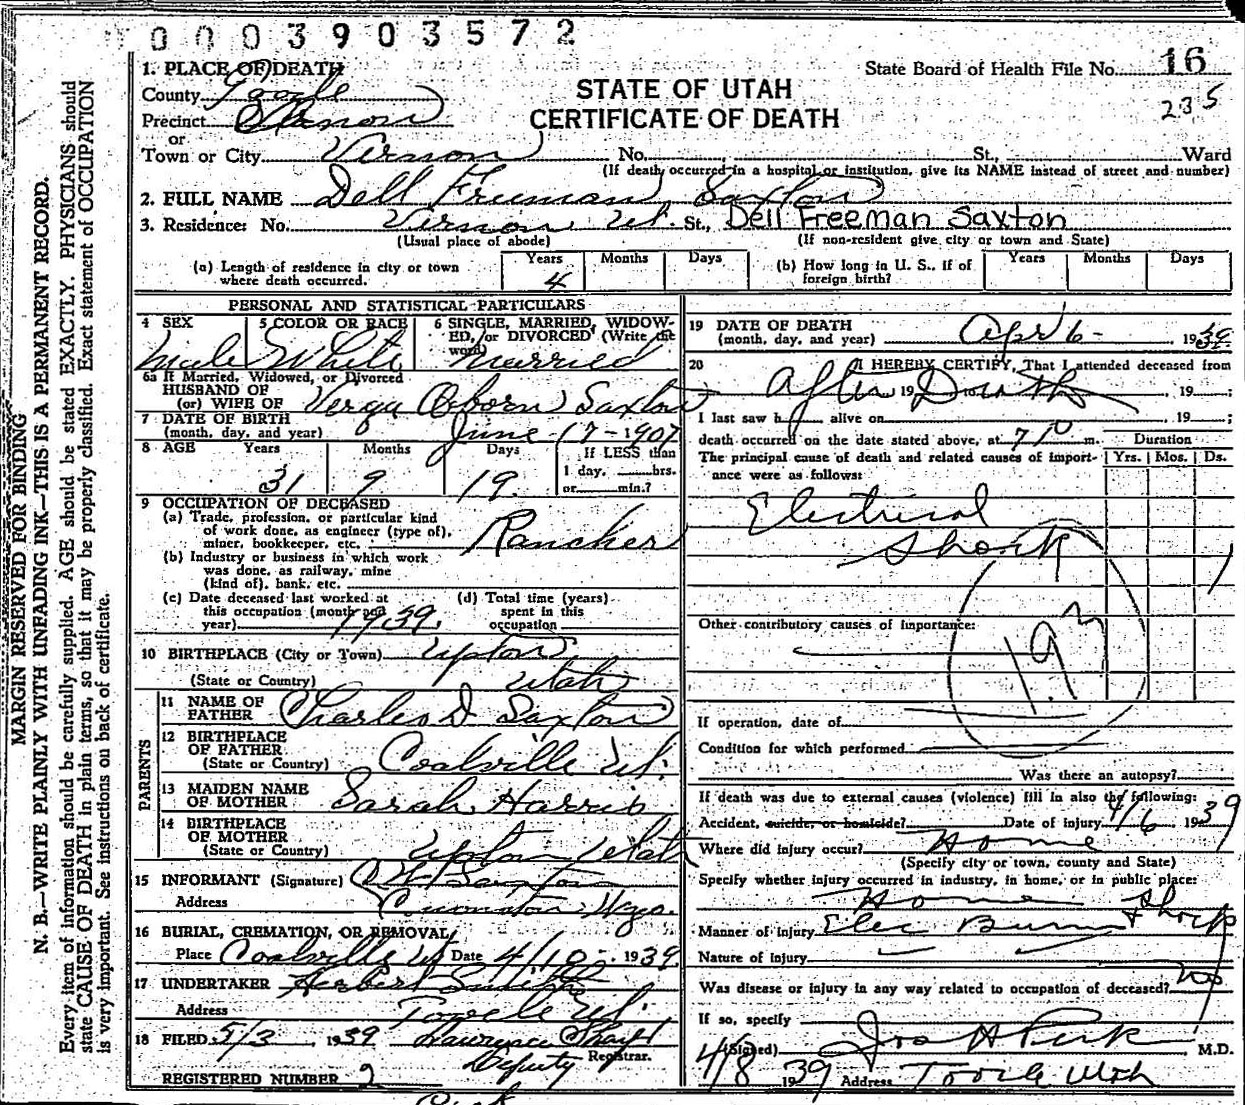 0003903572
MARGIN RESERVED FOR BINDING
N. B.—WRITE PLAINLY WITH UNFADING INK—THIS IS A PERMANENT RECORD.
Every item of information should be carefully supplied. AGE should be stated EXACTLY. PHYSICIANS should
state CAUSE OF DEATH in plain terms, so that it may be properly classified. Exact statement of OCCUPATION
is very important. See instructions on back of certificate.
State Board of Health File No. 16
235
STATE OF UTAH
CERTIFICATE OF DEATH
1. PLACE OF DEATH
County Tooele
Precinct
or
Town or City Vernon No. St., Ward
(If death occurred in a hospital or institution, give its NAME instead of street and number)
2. FULL NAME Dell Freeman Saxton
3. Residence: No. Vernon Ut. St., Dell Freeman Saxton
(Usual place of abode) (If non-resident give city or town and State)
(a) Length of residence in city or town where death occurred. Years 4 Months Days
(b) How long in U. S., if of foreign birth? Years Months Days
PERSONAL AND STATISTICAL PARTICULARS
4 SEX Male
5 COLOR OR RACE White
6 SINGLE, MARRIED, WIDOWED, or DIVORCED (Write the word) Married
6a If Married, Widowed, or Divorced
HUSBAND OF
(or) WIFE OF Verga Osborn Saxton
7 DATE OF BIRTH
(month, day, and year) June 17-1907
8 AGE Years 31 Months 9 Days 19
If LESS than 1 day, hrs. or min.?
9 OCCUPATION OF DECEASED
(a) Trade, profession, or particular kind
of work done, as engineer (type of),
miner, bookkeeper, etc. Rancher
(b) Industry or business in which work
was done, as railway, mine
(kind of), bank, etc.
(c) Date deceased last worked at
this occupation (month and
year) 1939
(d) Total time (years)
spent in this
occupation
10 BIRTHPLACE (City or Town) Upton
(State or Country) Utah
PARENTS
11 NAME OF FATHER Charles D Saxton
12 BIRTHPLACE OF FATHER (State or Country) Coalville Ut.
13 MAIDEN NAME OF MOTHER Sarah Harris
14 BIRTHPLACE OF MOTHER (State or Country) Upton Utah
15 INFORMANT (Signature) Saxton
Address Wyo.
16 BURIAL, CREMATION, OR REMOVAL
Place Coalville Ut Date 4/10- 1939
17 UNDERTAKER Herbert Smith
Address Tooele Ut.
18 FILED 5/3 1939 Lawrence
Deputy Registrar.
REGISTERED NUMBER 2
19 DATE OF DEATH
(month, day, and year) Apr 6- 1939
20 I HEREBY CERTIFY, That I attended deceased from
After Death, 19 to , 19 ;
I last saw h alive on , 19 ;
death occurred on the date stated above, at 7 m.
The principal cause of death and related causes of importance were as follows:
Duration
Yrs. Mos. Ds.
Electrical
Shock
193
Other contributory causes of importance:
If operation, date of
Condition for which performed
Was there an autopsy?
If death was due to external causes (violence) fill in also the following:
Accident, suicide, or homicide? Date of injury 4/6 1939
Where did injury occur? Home
(Specify city or town, county and State)
Specify whether injury occurred in industry, in home, or in public place:
Home
Manner of injury Elec Burn & Shock
Nature of injury
Was disease or injury in any way related to occupation of deceased?
If so, specify
(Signed) Jos H Peck M.D.
4/8 1939 Address Tooele Utah